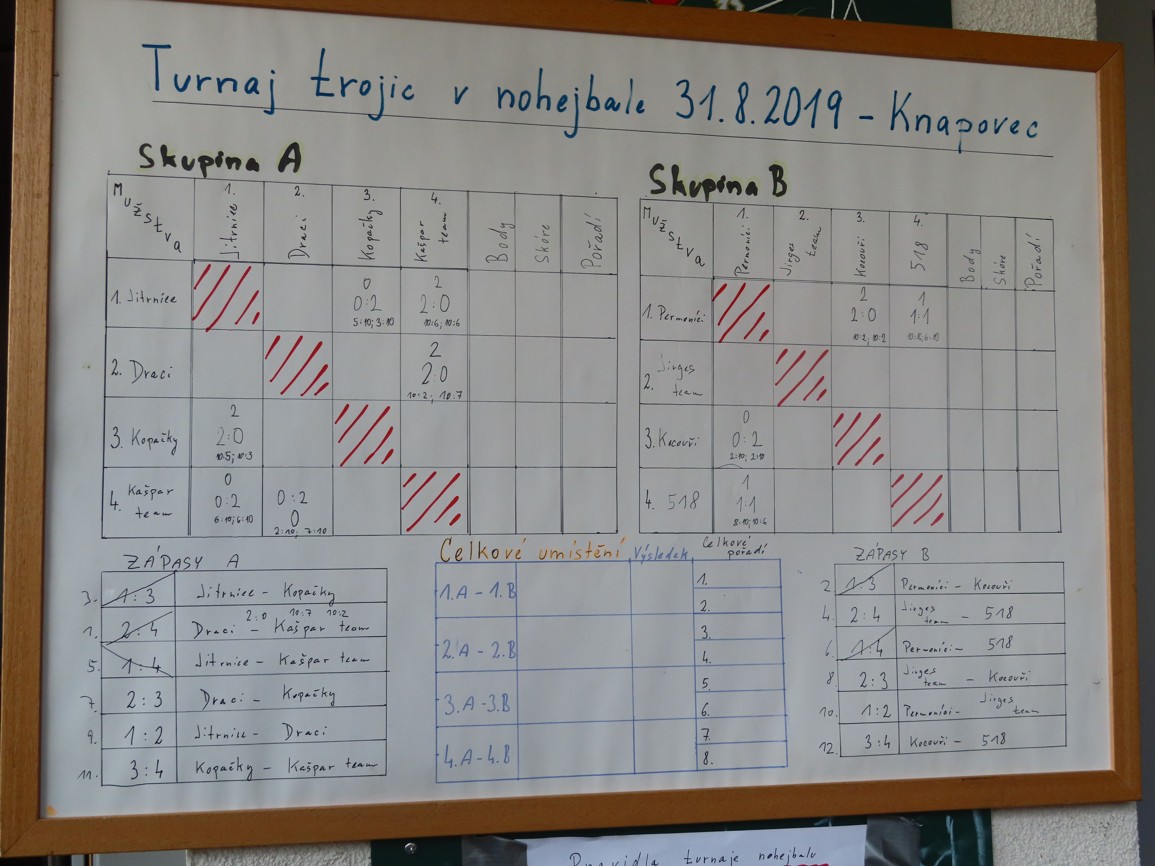 Turnaj trojic v nohejbale 31.8.2019 - Knapovec
Skupina A
Mužstva 1. Jitrnice 2. Draci 3. Kopačky 4. Kašpar team Body Skóre Pořadí
1. Jitrnice 0 2
0:2 2:0
5:10; 3:10 10:6; 10:6
2. Draci 2
2:0
10:2; 10:7
3. Kopačky 2
2:0
10:5; 10:3
4. Kašpar team 0
0:2 0:2
6:10; 6:10 0
2:10, 7:10
Skupina B
Mužstva 1. Permoníci 2. Jirges team 3. Kocouři 4. 518 Body Skóre Pořadí
1. Permoníci 2 1
2:0 1:1
10:2; 10:2 10:8; 6:10
2. Jirges team
3. Kocouři 0
0:2
2:10; 2:10
4. 518 1
1:1
8:10; 10:6
ZÁPASY A
3. 1:3 Jitrnice - Kopačky
2:0 10:7 10:2
1. 2:4 Draci - Kašpar team
5. 1:4 Jitrnice - Kašpar team
7. 2:3 Draci - Kopačky
9. 1:2 Jitrnice - Draci
11. 3:4 Kopačky - Kašpar team
Celkové umístění Výsledek Celkové pořadí
1.A - 1.B 1.
2.
2.A - 2.B 3.
4.
3.A - 3.B 5.
6.
4.A - 4.B 7.
8.
ZÁPASY B
2. 1:3 Permoníci - Kocouři
4. 2:4 Jirges team - 518
6. 1:4 Permoníci - 518
8. 2:3 Jirges team - Kocouři
10. 1:2 Permoníci - Jirges team
12. 3:4 Kocouři - 518
Pravidla turnaje nohejbalu